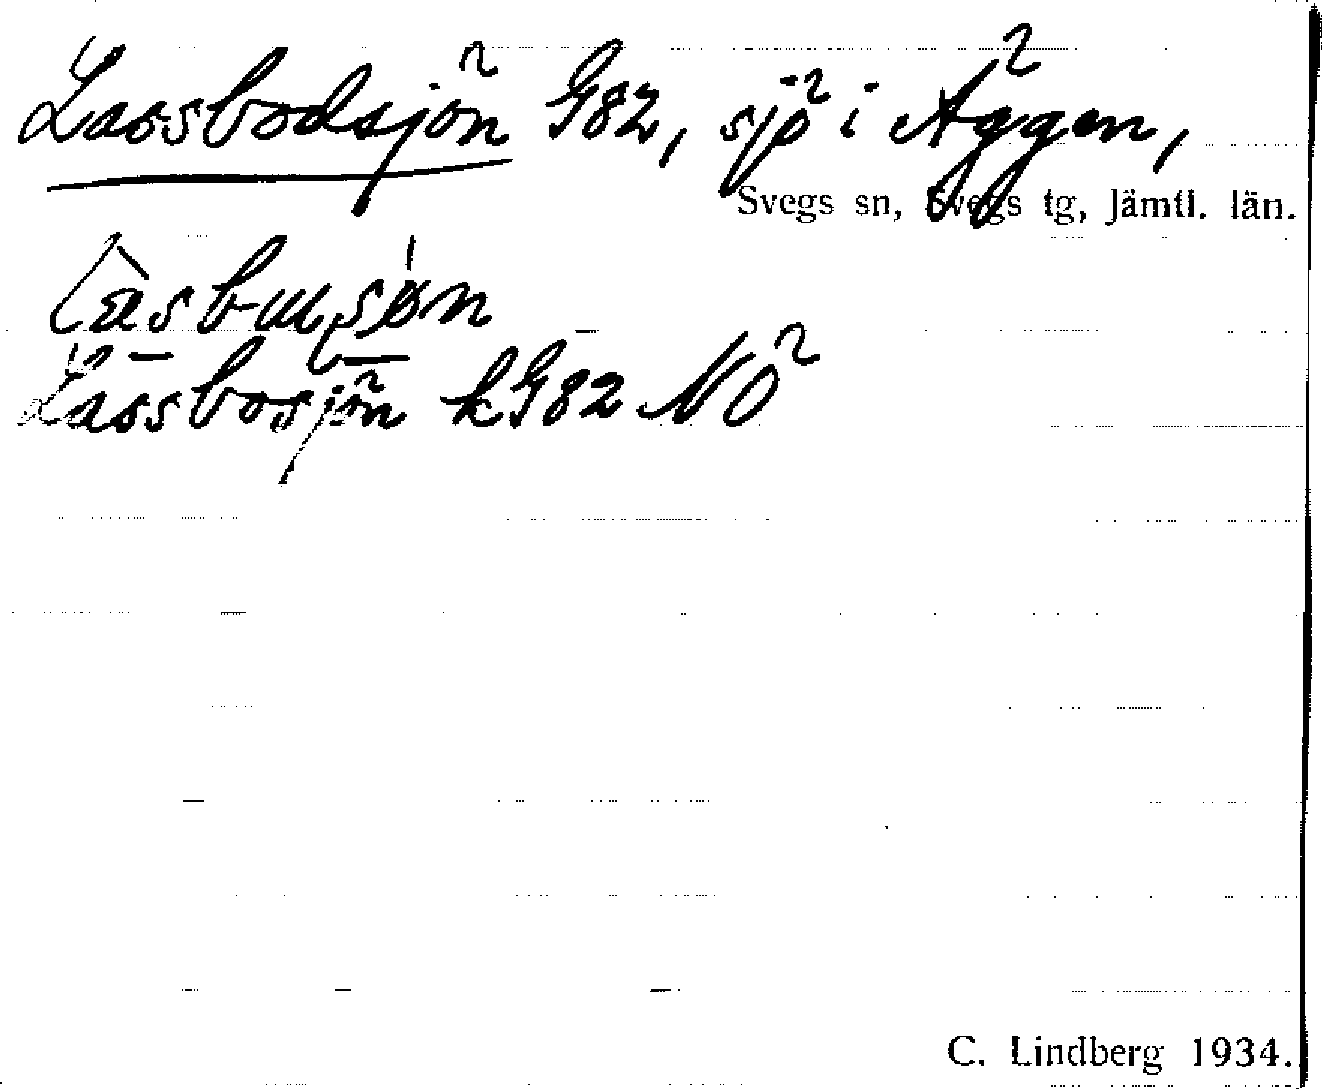 Lassbodsjön G82, sjö i Äggen,
Svegs sn, Svegs tg, Jämtl. län.
Lassbosjön kG82 NÖ
C. Lindberg 1934.